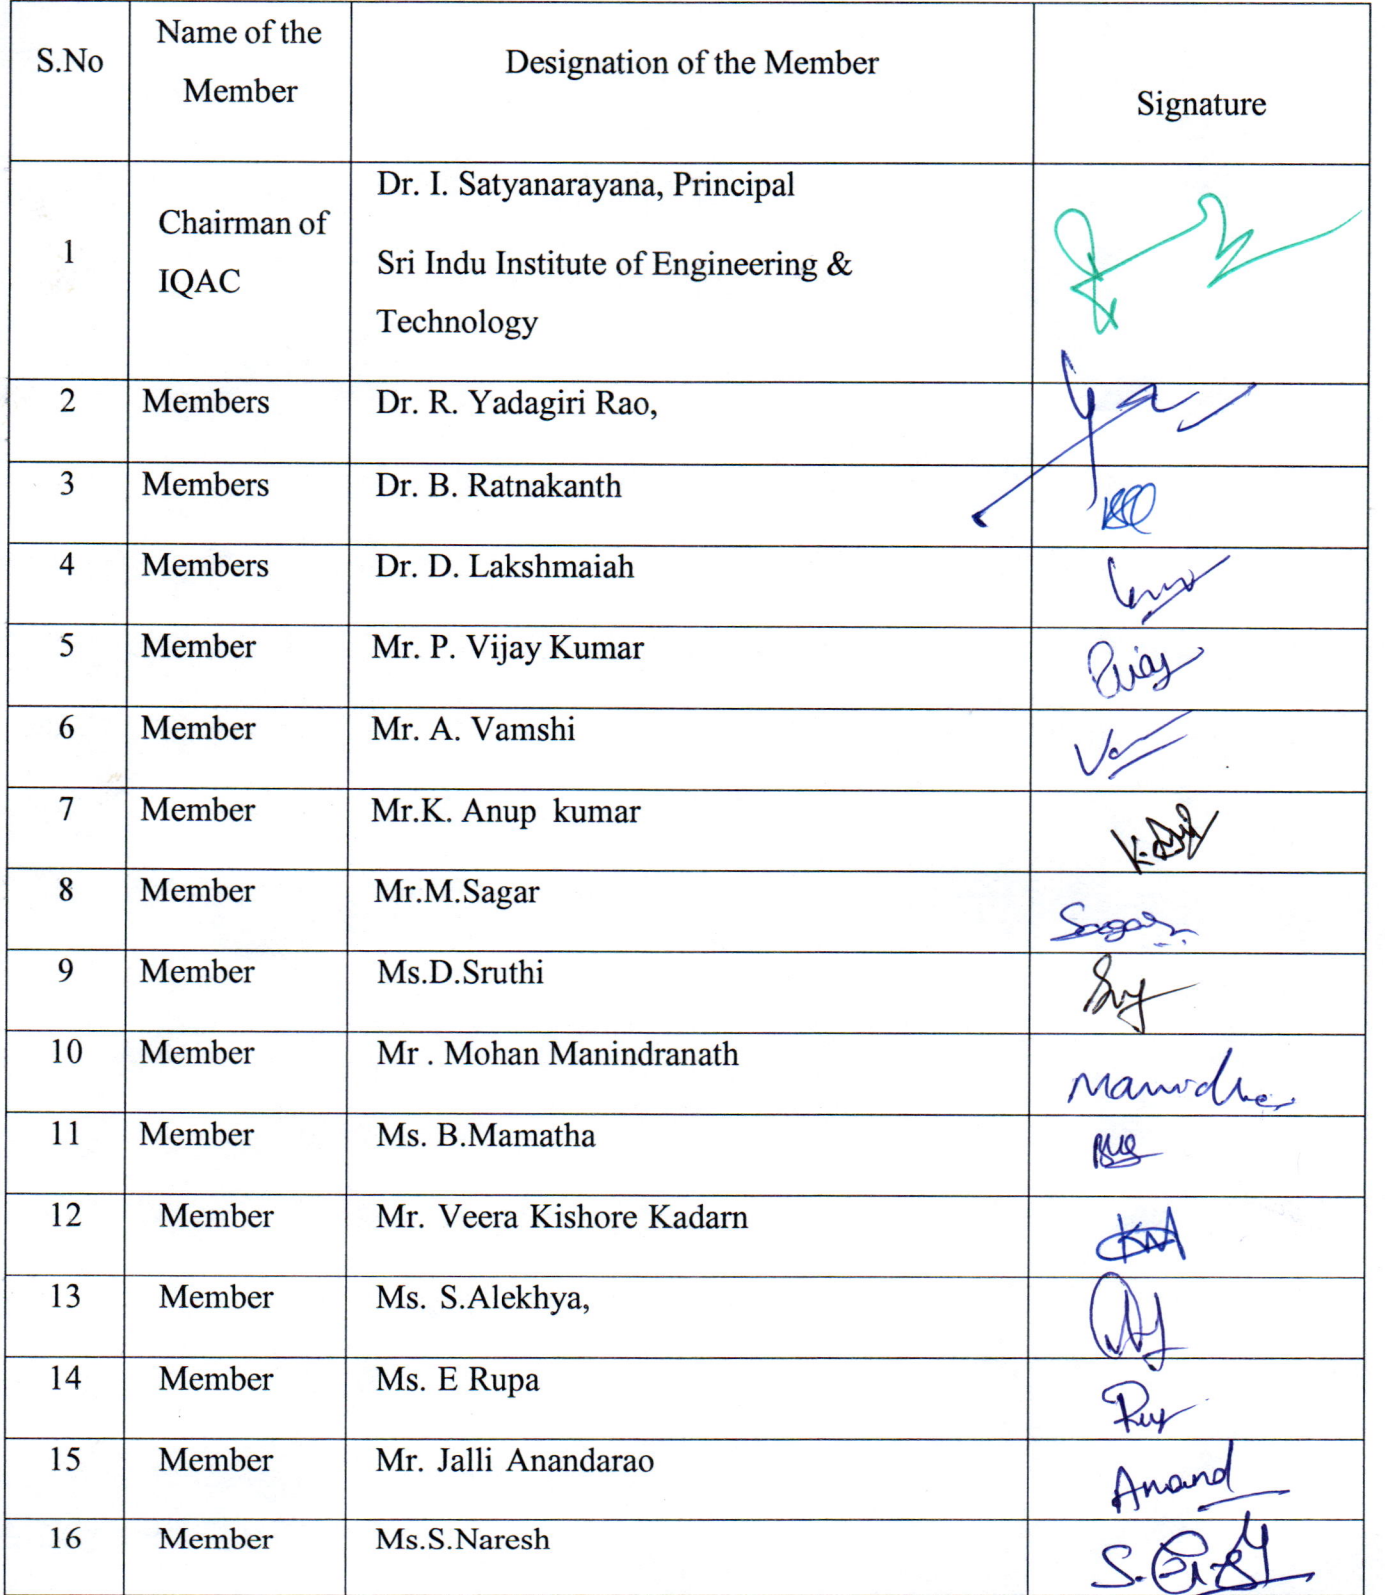 S.No
Name of the
Member
Designation of the Member
Signature
1
Chairman of
IQAC
Dr. I. Satyanarayana, Principal
Sri Indu Institute of Engineering &
Technology
2 Members Dr. R. Yadagiri Rao,
3 Members Dr. B. Ratnakanth
4 Members Dr. D. Lakshmaiah
5 Member Mr. P. Vijay Kumar
6 Member Mr. A. Vamshi
7 Member Mr.K. Anup kumar
8 Member Mr.M.Sagar Sagar
9 Member Ms.D.Sruthi
10 Member Mr . Mohan Manindranath
11 Member Ms. B.Mamatha
12 Member Mr. Veera Kishore Kadarn
13 Member Ms. S.Alekhya,
14 Member Ms. E Rupa
15 Member Mr. Jalli Anandarao Anand
16 Member Ms.S.Naresh